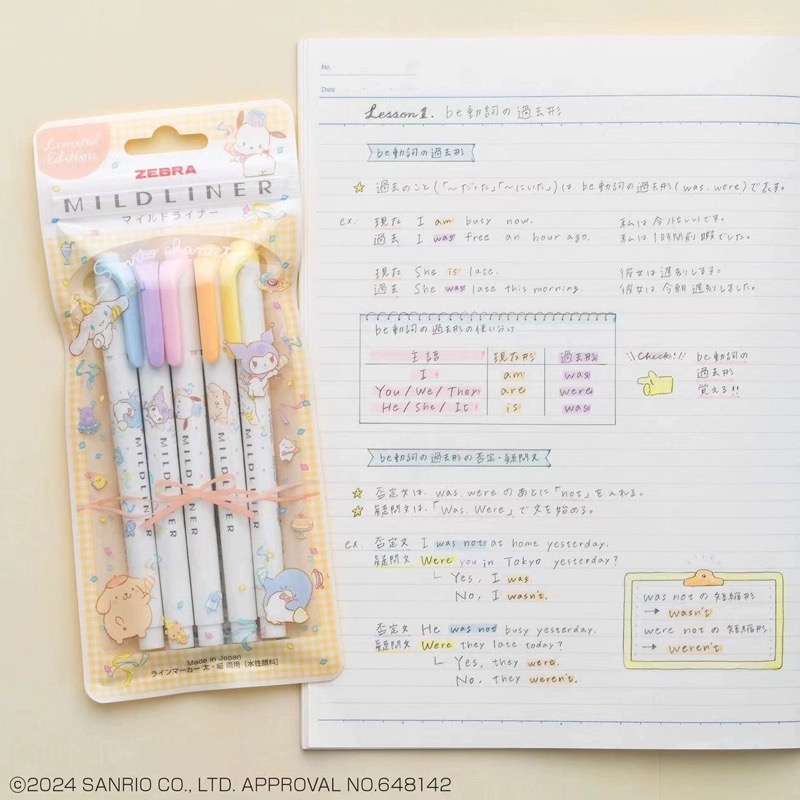 Limited
Edition
ZEBRA
MILDLINER
マイルドライナー
MILDLINER
MILDLINER
MILDLINER
MILDLINER
MILDLINER
Made in Japan
ラインマーカー 太・細 両用 [水性顔料]
No.
Date
Lesson1. be動詞の過去形
be動詞の過去形
☆ 過去のこと(「〜だった」「〜にいた」)は be動詞の過去形(was.were)で表す。
ex. 現在 I am busy now. 私は今忙しいです。
過去 I was free an hour ago. 私は1時間前暇でした。
現在 She is late. 彼女は遅刻します。
過去 She was late this morning. 彼女は今朝遅刻しました。
be動詞の過去形の使い分け
主語 現在形 過去形
I am was
You/We/They are were
He/She/It is was
\\Check!// be動詞の
過去形
覚える!!
be動詞の過去形の否定・疑問文
☆ 否定文は、was.were のあとに「not」を入れる。
☆ 疑問文は、「Was.Were」で文を始める。
ex. 否定文 I was not at home yesterday.
疑問文 Were you in Tokyo yesterday?
└ Yes, I was.
No, I wasn't.
否定文 He was not busy yesterday.
疑問文 Were they late today?
└ Yes, they were.
No, they weren't.
was not の短縮形
→ wasn't
were not の短縮形
→ weren't
©2024 SANRIO CO., LTD. APPROVAL NO.648142